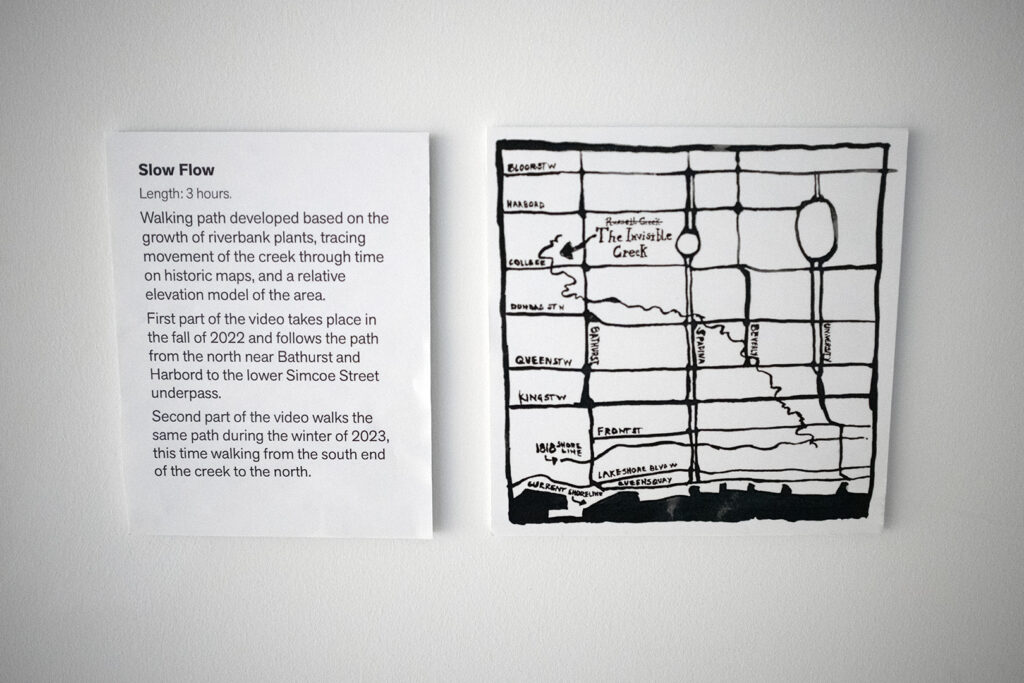 Slow Flow
Length: 3 hours.
Walking path developed based on the
growth of riverbank plants, tracing
movement of the creek through time
on historic maps, and a relative
elevation model of the area.
First part of the video takes place in
the fall of 2022 and follows the path
from the north near Bathurst and
Harbord to the lower Simcoe Street
underpass.
Second part of the video walks the
same path during the winter of 2023,
this time walking from the south end
of the creek to the north.
BLOOR ST W
HARBORD
The Invisible
Creek
COLLAGE
QUEEN ST W
BATHURST
SPADINA
BEVERLY
UNIVERSITY
KING ST W
FRONT ST
1818 SHORE
LINE
LAKESHORE BLVD W
QUEENS QUAY
CURRENT SHORELINE